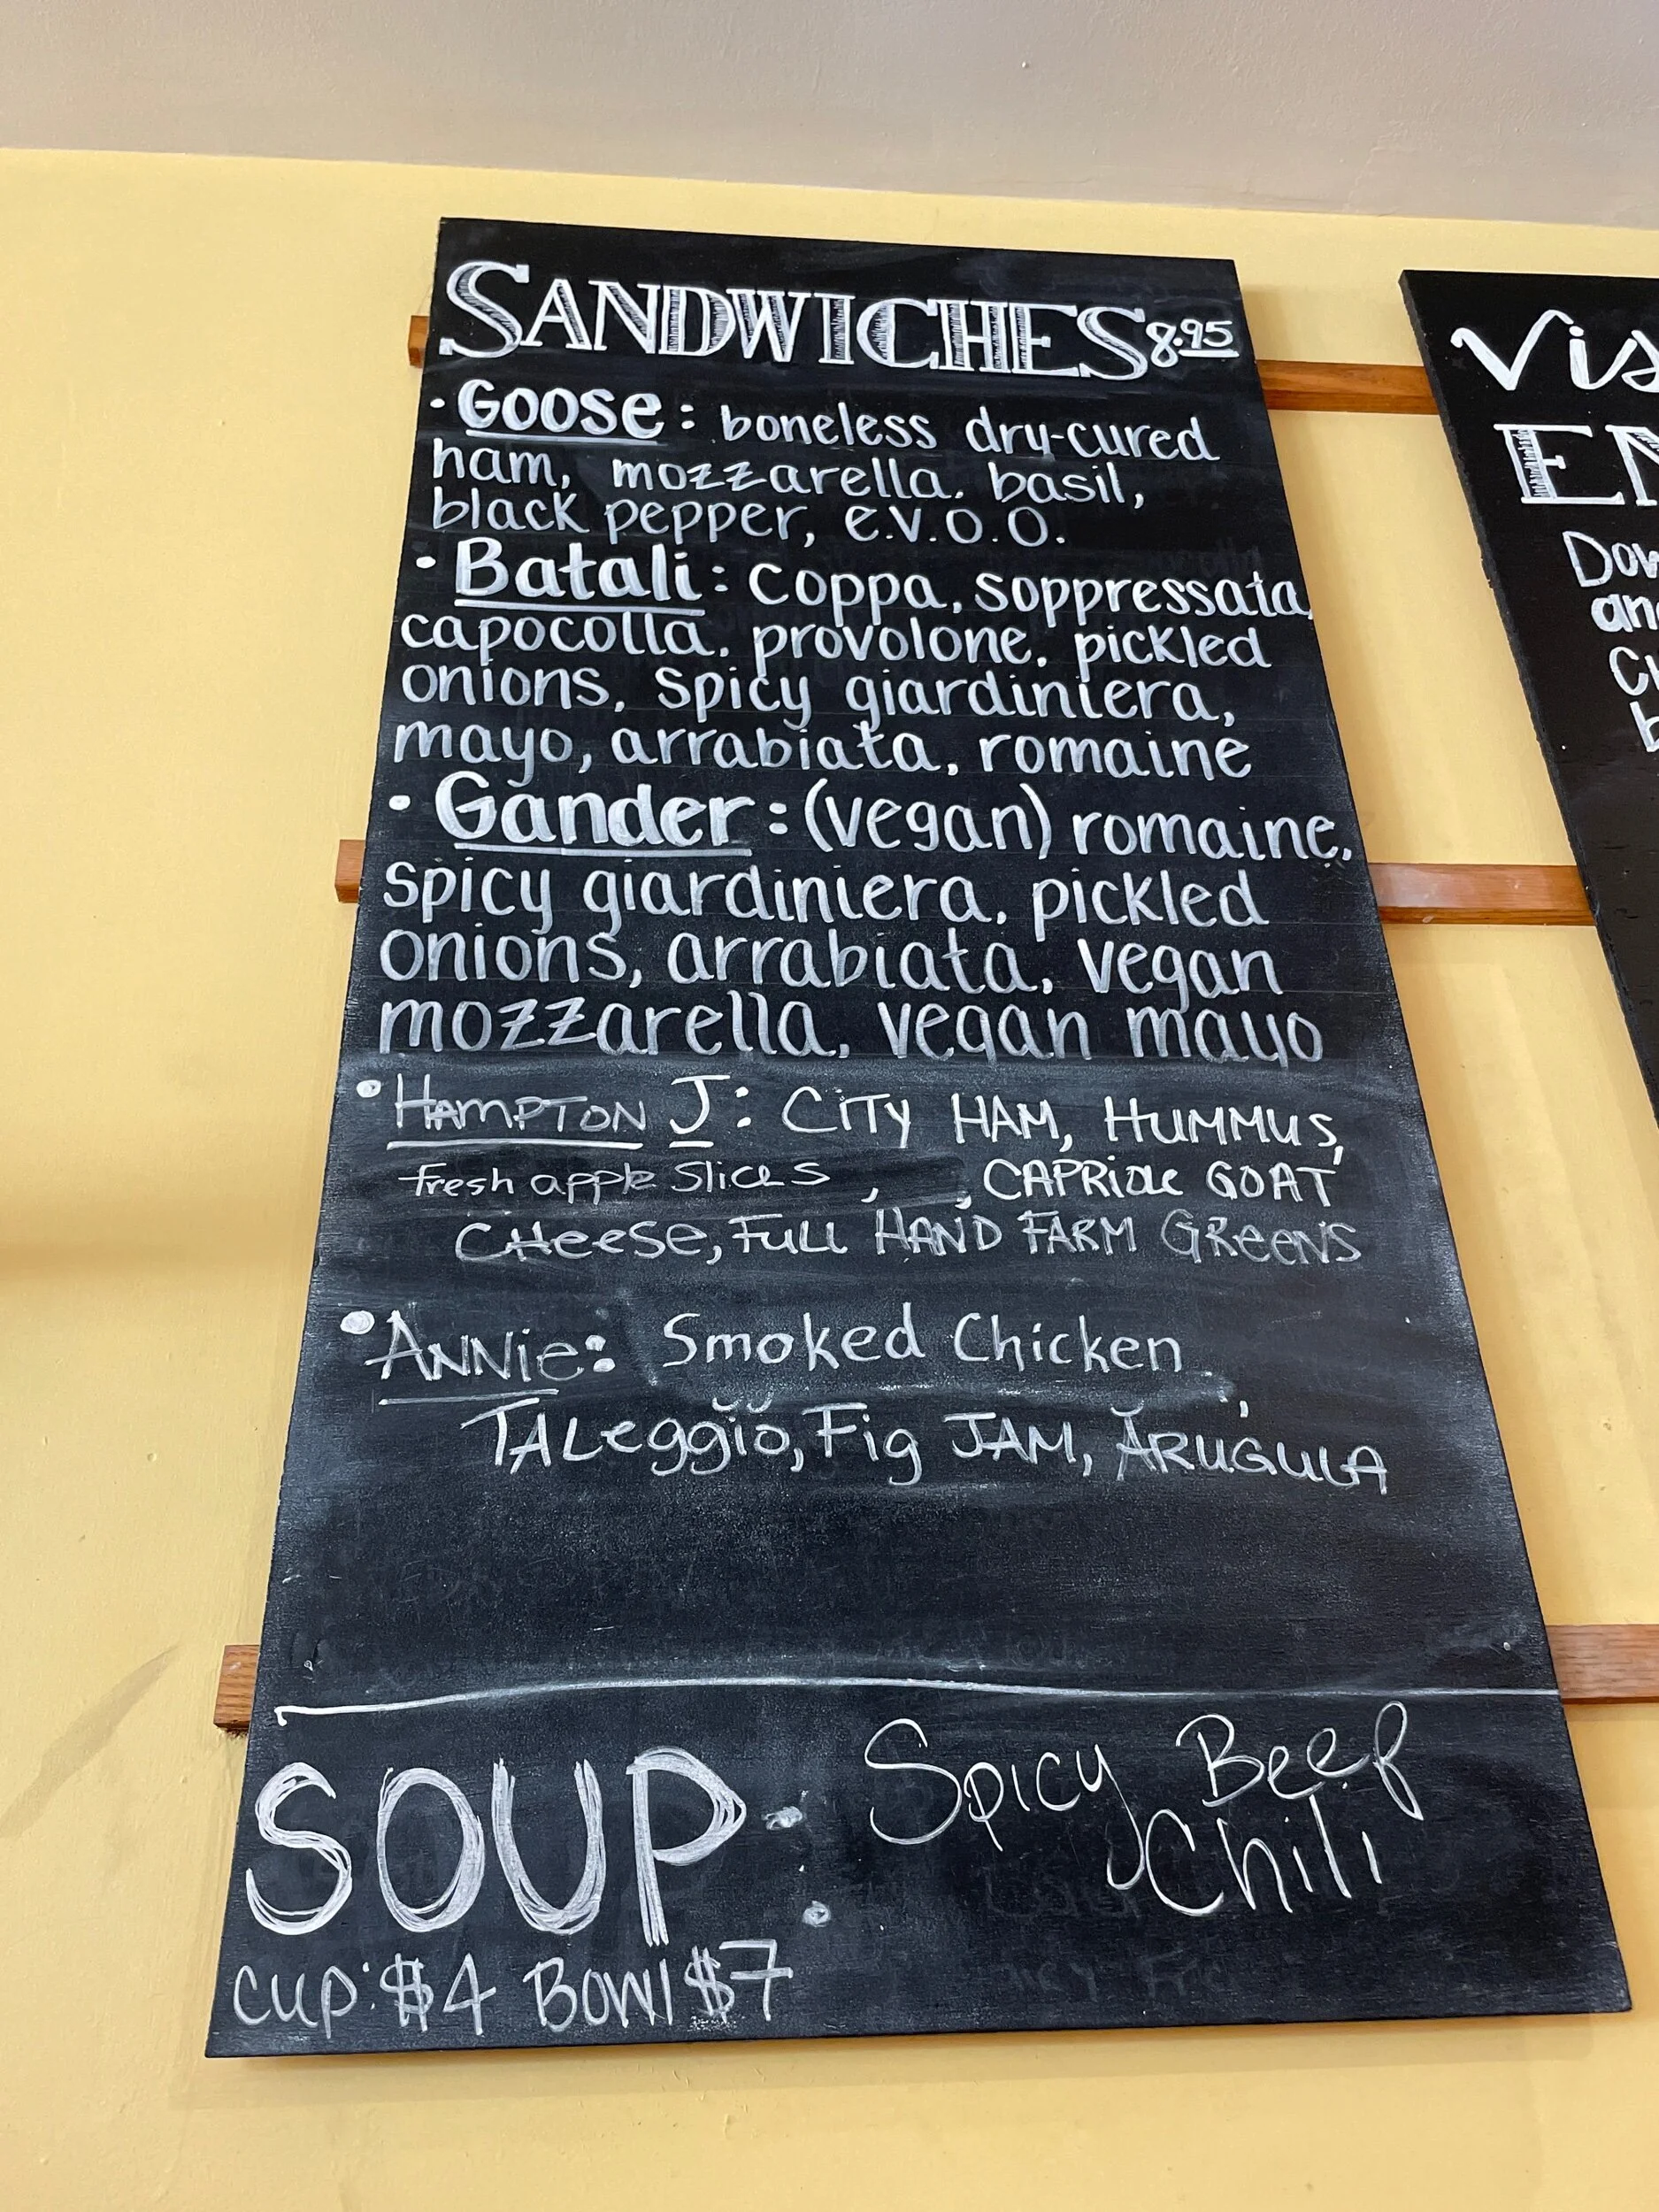 SANDWICHES 8.95
• Goose: boneless dry-cured
ham, mozzarella, basil,
black pepper, e.v.o.o.
• Batali: coppa, soppressata,
capocolla, provolone, pickled
onions, spicy giardiniera,
mayo, arrabiata, romaine
• Gander: (vegan) romaine,
spicy giardiniera, pickled
onions, arrabiata, vegan
mozzarella, vegan mayo
• HAMPTON J: CITY HAM, HUMMUS,
fresh apple slices , , CAPRIOLE GOAT
CHEESE, FULL HAND FARM GREENS
• ANNIE: Smoked Chicken,
TALeggio, Fig JAM, ARUGULA
SOUP: Spicy Beef
Chili
cup: $4 Bowl $7